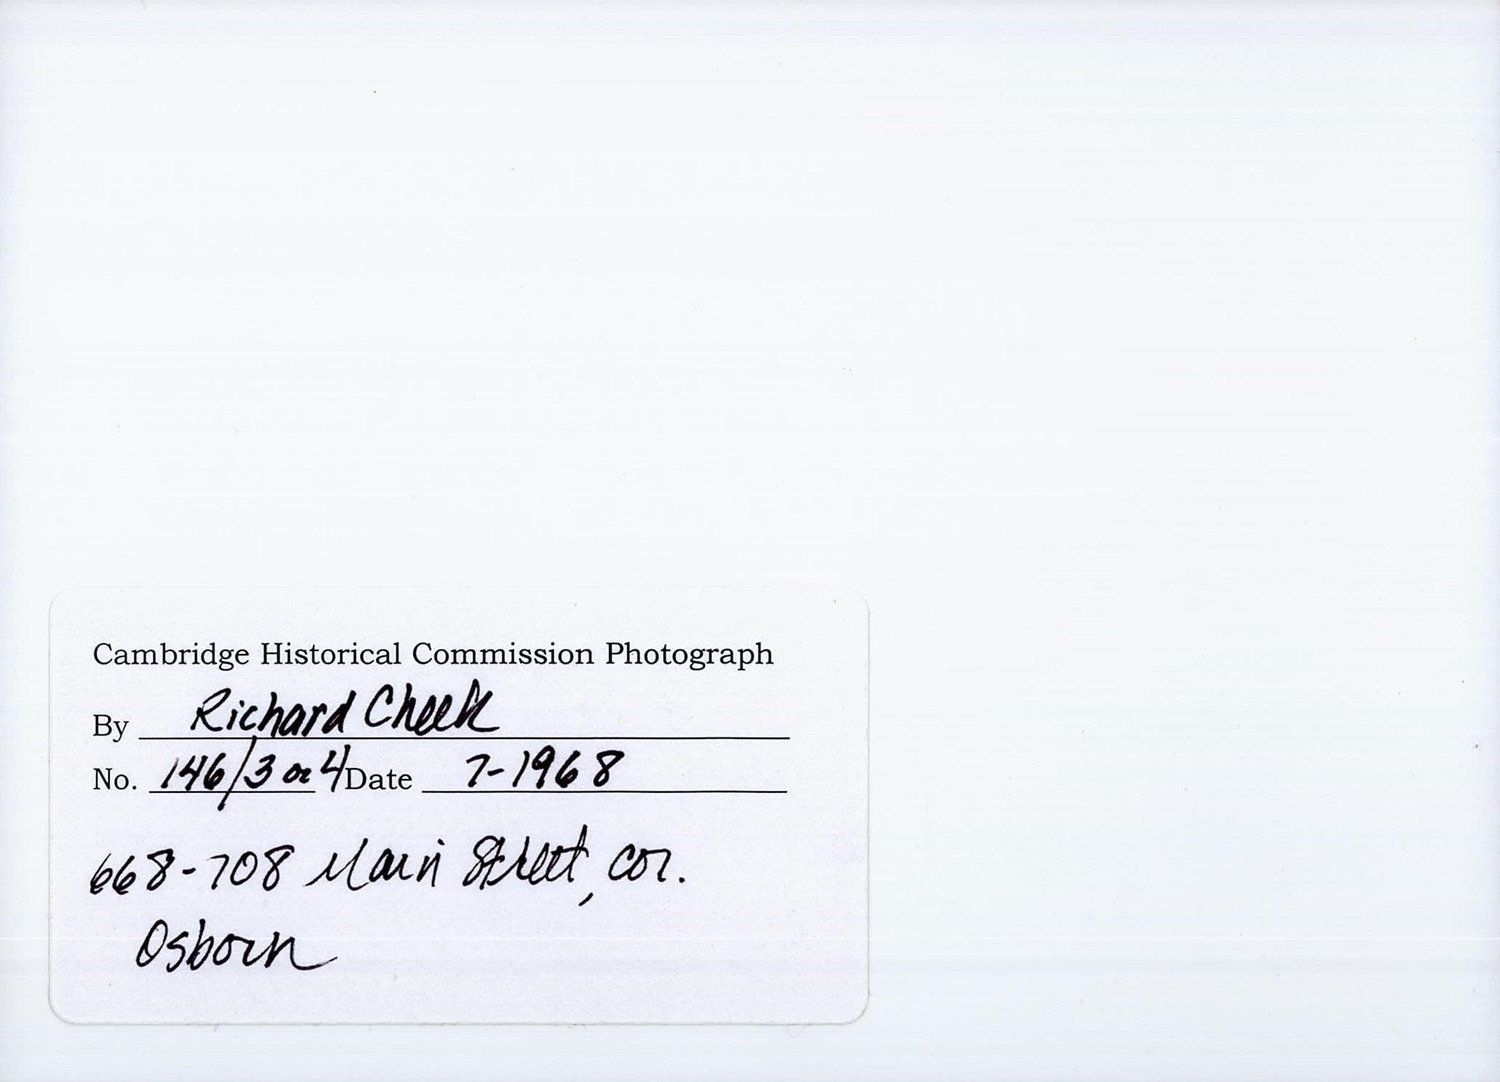 Cambridge Historical Commission Photograph
By Richard Cheek
No. 146/3 or 4 Date 7-1968
668-708 Main Street, cor.
Osborn